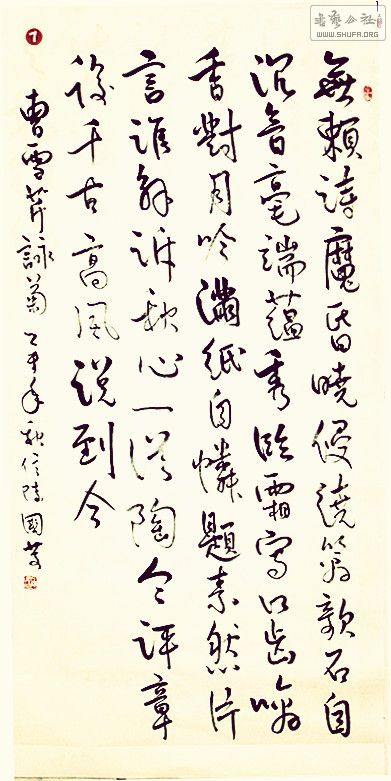 書藝公社
WWW.SHUFA.ORG
7
無賴詩魔昏曉侵繞籬欹石自
沉音毫端蘊秀臨霜寫口齒噙
香對月吟滿紙自憐題素怨片
言誰解訴秋心一從陶令評章
後千古高風說到今
曹雪芹詠菊 年秋信陵國